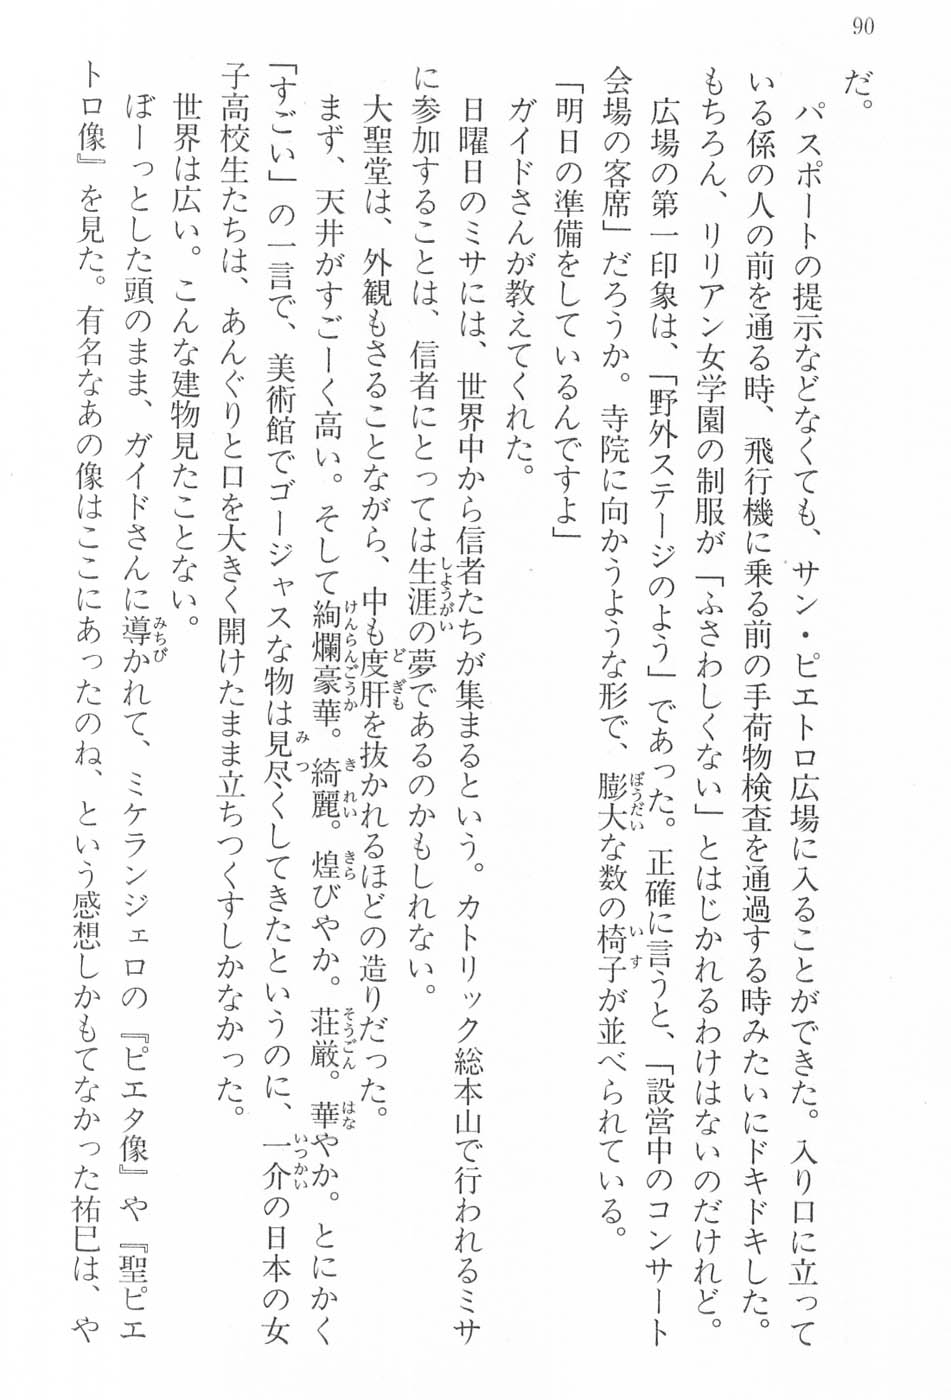 90
だ。
パスポートの提示などなくても、サン・ピエトロ広場に入ることができた。入り口に立って
いる係の人の前を通る時、飛行機に乗る前の手荷物検査を通過する時みたいにドキドキした。
もちろん、リリアン女学園の制服が「ふさわしくない」とはじかれるわけはないのだけれど。
広場の第一印象は、「野外ステージのよう」であった。正確に言うと、「設営中のコンサート
会場の客席」だろうか。寺院に向かうような形で、膨大な数の椅子が並べられている。
「明日の準備をしているんですよ」
ガイドさんが教えてくれた。
日曜日のミサには、世界中から信者たちが集まるという。カトリック総本山で行われるミサ
に参加することは、信者にとっては生涯の夢であるのかもしれない。
大聖堂は、外観もさることながら、中も度肝を抜かれるほどの造りだった。
まず、天井がすごーく高い。そして絢爛豪華。綺麗。煌びやか。荘厳。華やか。とにかく
「すごい」の一言で、美術館でゴージャスな物は見尽くしてきたというのに、一介の日本の女
子高校生たちは、あんぐりと口を大きく開けたまま立ちつくすしかなかった。
世界は広い。こんな建物見たことない。
ぼーっとした頭のまま、ガイドさんに導かれて、ミケランジェロの『ピエタ像』や『聖ピエ
トロ像』を見た。有名なあの像はここにあったのね、という感想しかもてなかった祐巳は、や